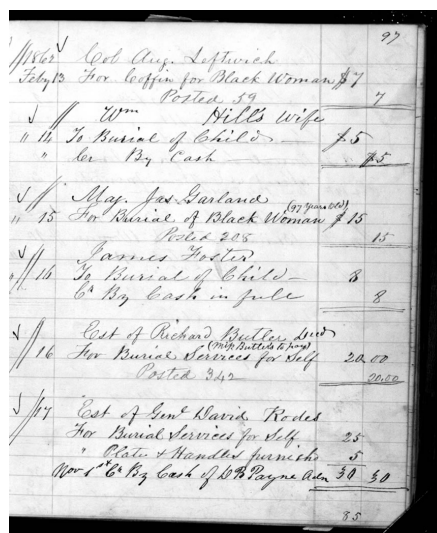 97
1862 Col Aug. Leftwich
Feby 13 For Coffin for Black Woman $7
Posted 59 7
// Wm Hill's Wife
" 14 To Burial of Child $5
" Cr By Cash $5
// Maj. Jas Garland
(97 Years Old)
" 15 For Burial of Black Woman $15
Posted 208 15
James Foster
" 16 To Burial of Child 8
Cr By Cash in full 8
Est of Richard Butler Decd
(Miss Butler to pay)
16 For Burial Services for Self 20.00
Posted 342 20.00
17 Est of Genl David Rodes
For Burial Services for Self 25
" Plate & Handles furnishd 5
Nov 1st Cr By Cash of D B Payne Adm 30 30
85